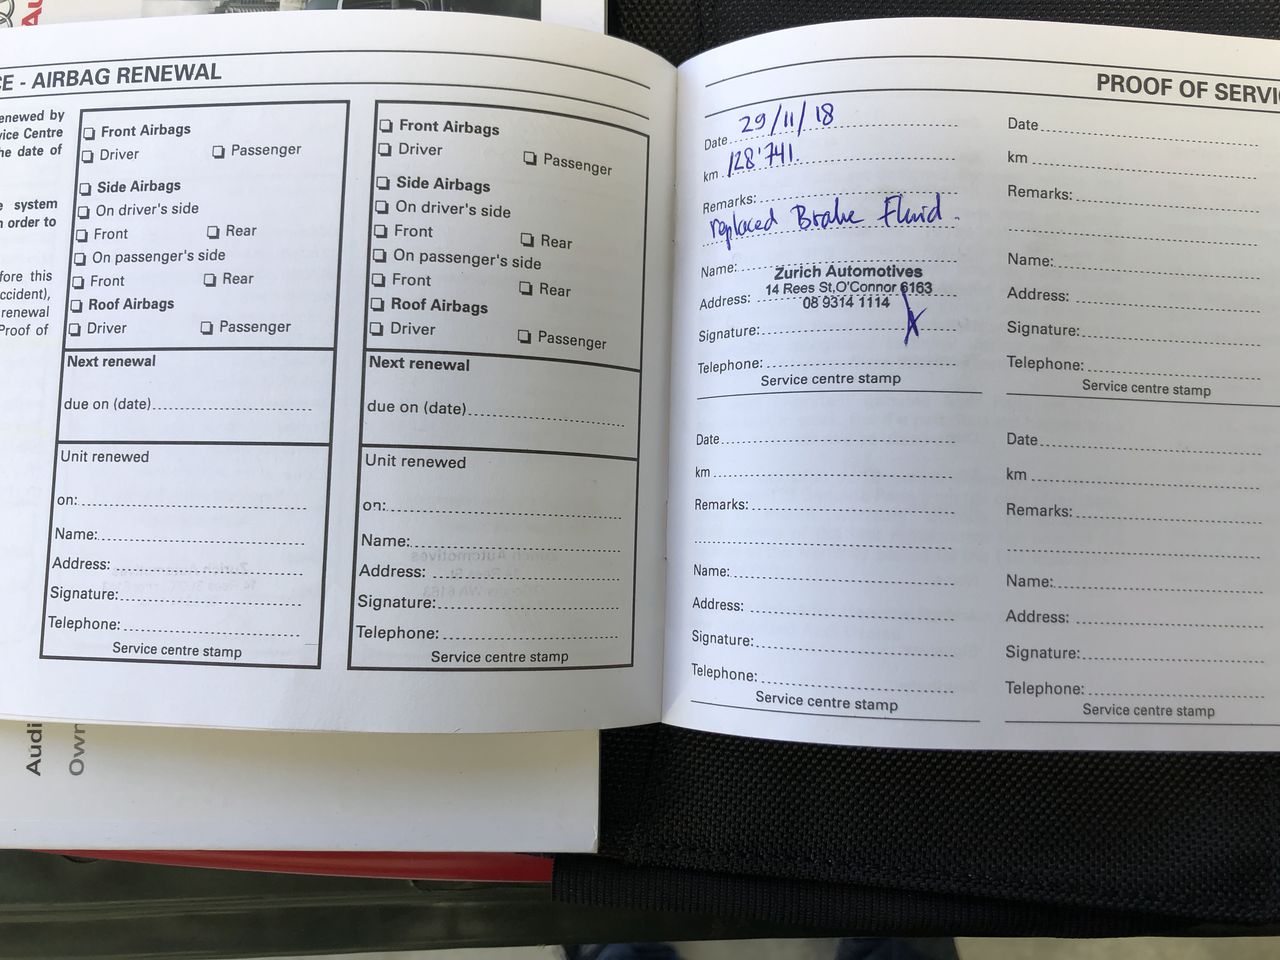 CE - AIRBAG RENEWAL
enewed by
vice Centre
he date of
e system
n order to
fore this
ccident),
renewal
Proof of
❏ Front Airbags
❏ Driver ❏ Passenger
❏ Side Airbags
❏ On driver's side
❏ Front ❏ Rear
❏ On passenger's side
❏ Front ❏ Rear
❏ Roof Airbags
❏ Driver ❏ Passenger
Next renewal
due on (date)
Unit renewed
on:
Name:
Address:
Signature:
Telephone:
Service centre stamp
❏ Front Airbags
❏ Driver ❏ Passenger
❏ Side Airbags
❏ On driver's side
❏ Front ❏ Rear
❏ On passenger's side
❏ Front ❏ Rear
❏ Roof Airbags
❏ Driver ❏ Passenger
Next renewal
due on (date)
Unit renewed
on:
Name:
Address:
Signature:
Telephone:
Service centre stamp
PROOF OF SERVIC
Date 29/11/18
km 128'741.
Remarks:
replaced Brake Fluid.
Name: Zurich Automotives
Address: 14 Rees St,O'Connor 6163
08 9314 1114
Signature:
Telephone:
Service centre stamp
Date
km
Remarks:
Name:
Address:
Signature:
Telephone:
Service centre stamp
Date
km
Remarks:
Name:
Address:
Signature:
Telephone:
Service centre stamp
Date
km
Remarks:
Name:
Address:
Signature:
Telephone:
Service centre stamp
Audi
Own